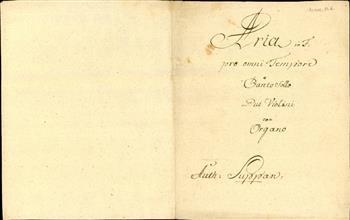 Aria in F.
pro omni Tempore
a
Canto Sollo
Due Violini
con
Organo
Auth: Suppan.